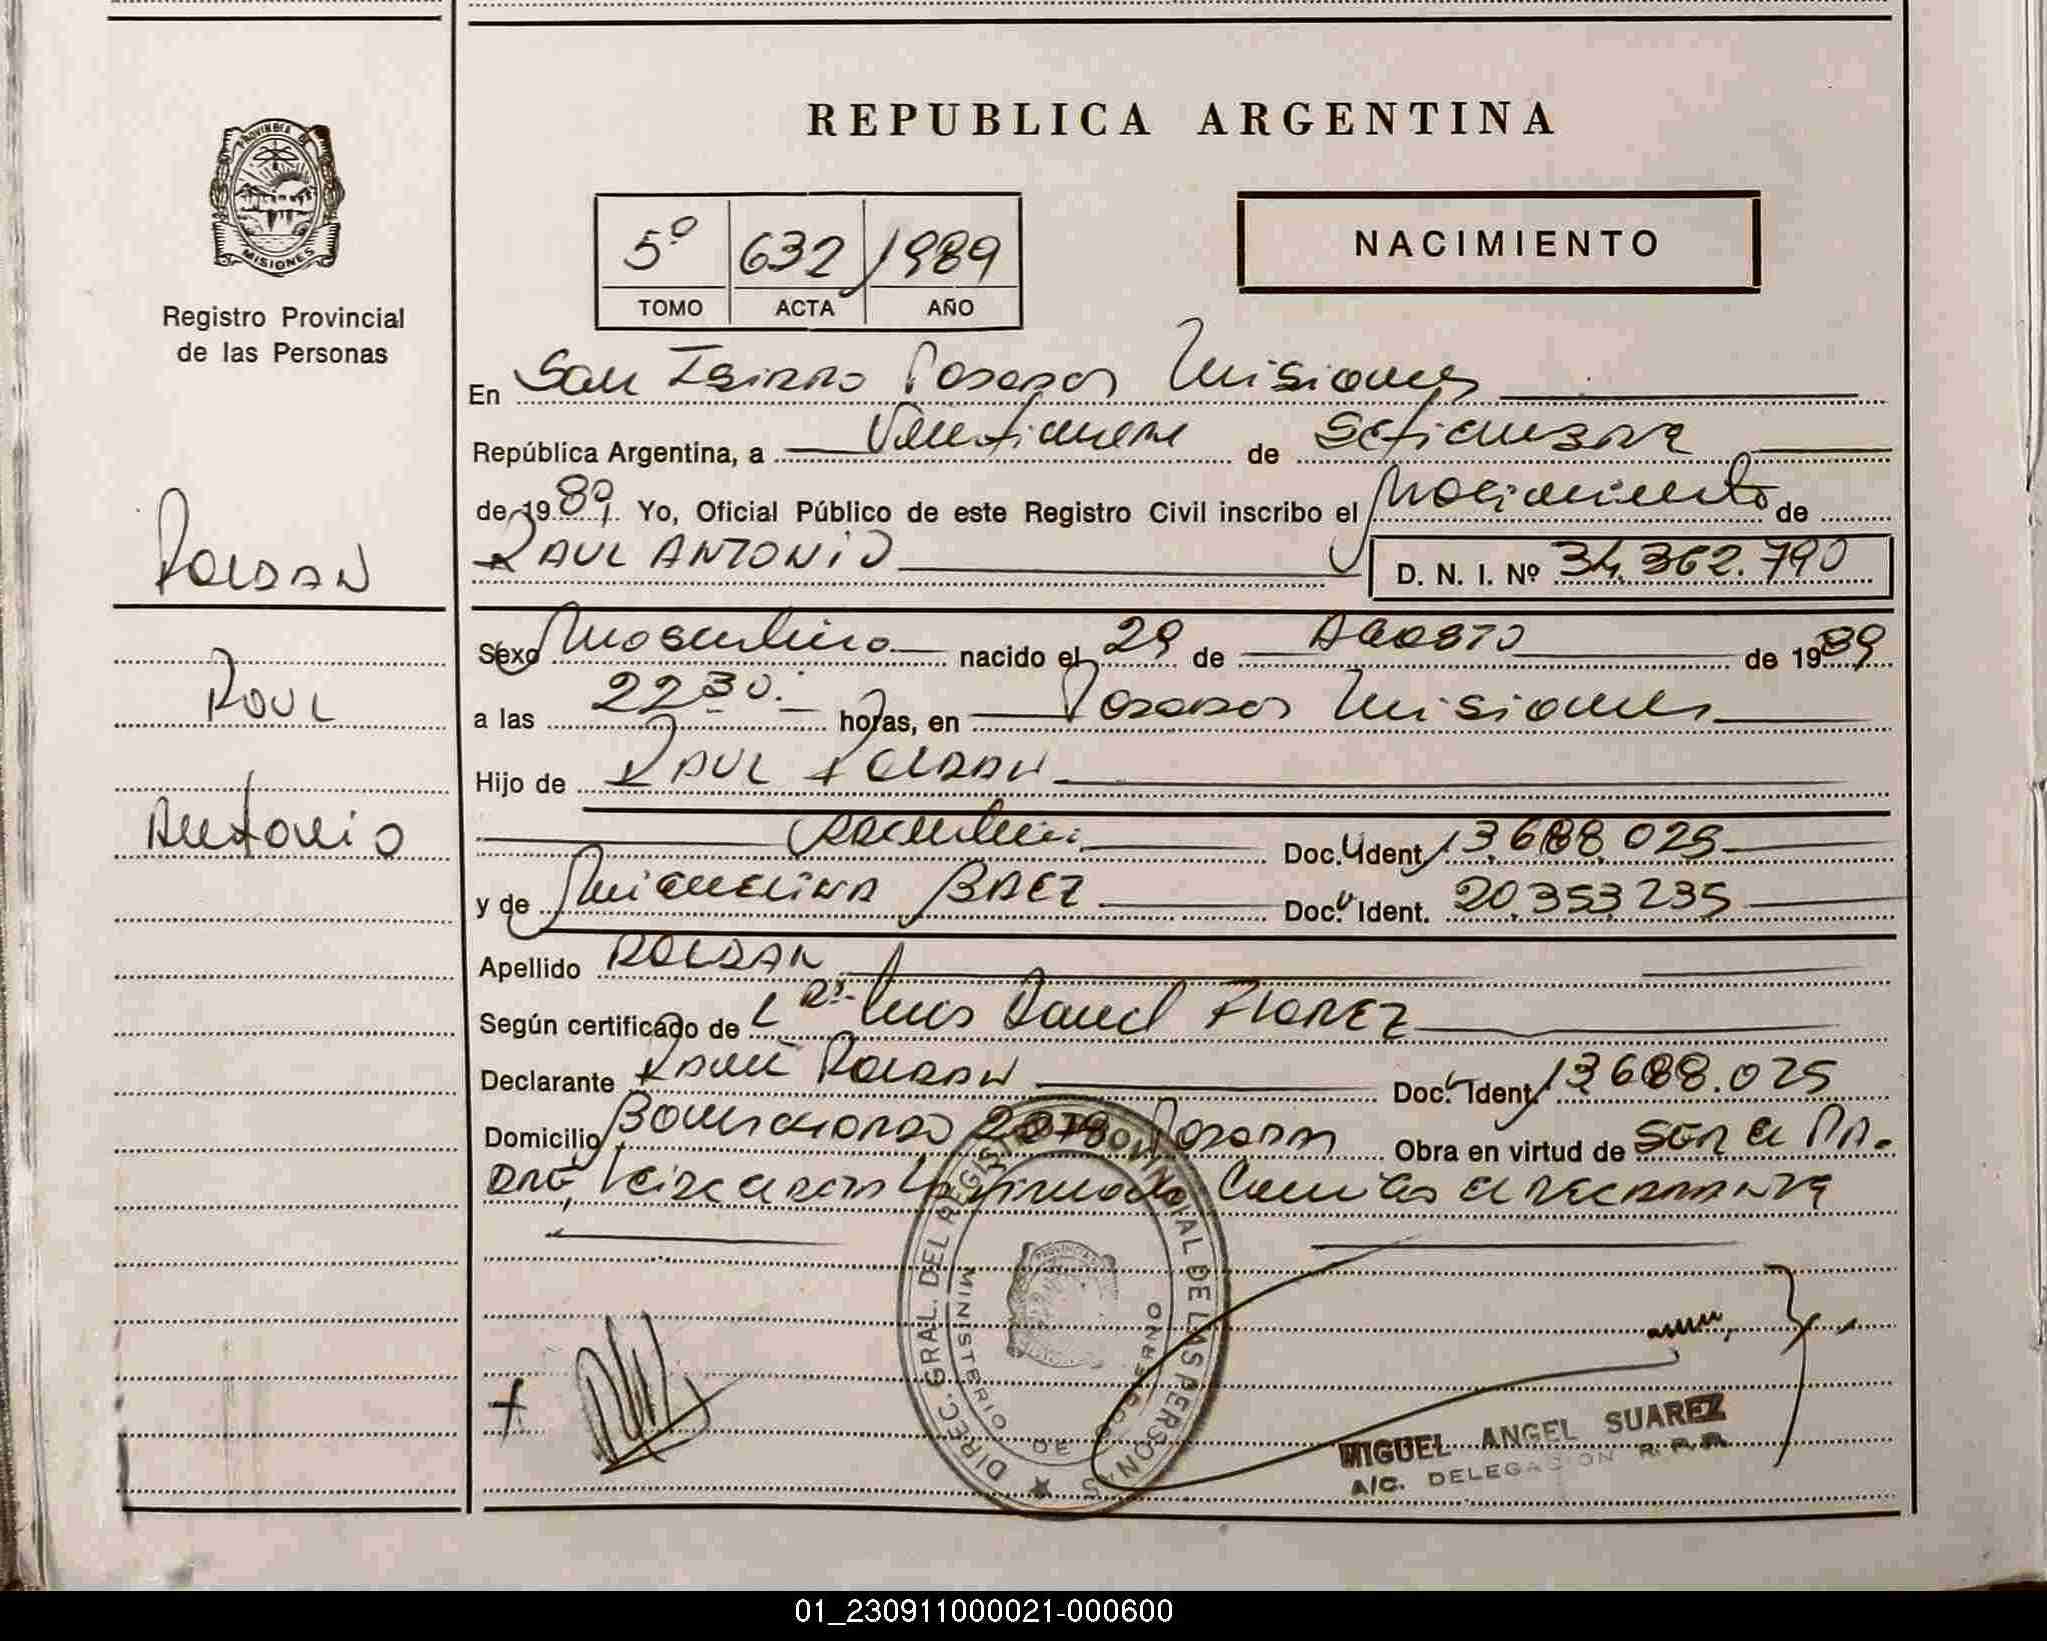 REPUBLICA ARGENTINA
PROVINCIA DE
MISIONES
Registro Provincial
de las Personas
5º 632 1989
TOMO ACTA AÑO
NACIMIENTO
En San Isidro Posadas Misiones
República Argentina, a Veintinueve de Setiembre
de 1989 Yo, Oficial Público de este Registro Civil inscribo el Nacimiento de
RAUL ANTONIO D. N. I. Nº 34.362.790
ROLDAN
Raul
Antonio
Sexo Masculino nacido el 29 de Agosto de 1989
a las 22 30 horas, en Posadas Misiones
Hijo de RAUL ROLDAN
Doc. Ident. 13.688.025
y de Miguelina BAEZ Doc. Ident. 20.353.235
Apellido ROLDAN
Según certificado de Luis Daniel FLOREZ
Declarante Raul Roldan Doc. Ident. 13.688.025
Domicilio Posadas Obra en virtud de Ser el Pa-
dre, Leida el acta la firma conmigo el declarante
DIREC. GRAL. DEL REGISTRO PROVINCIAL DE LAS PERSONAS
MINISTERIO DE GOBIERNO
MIGUEL ANGEL SUAREZ
A/C. DELEGACION R.P.P.
01_230911000021-000600